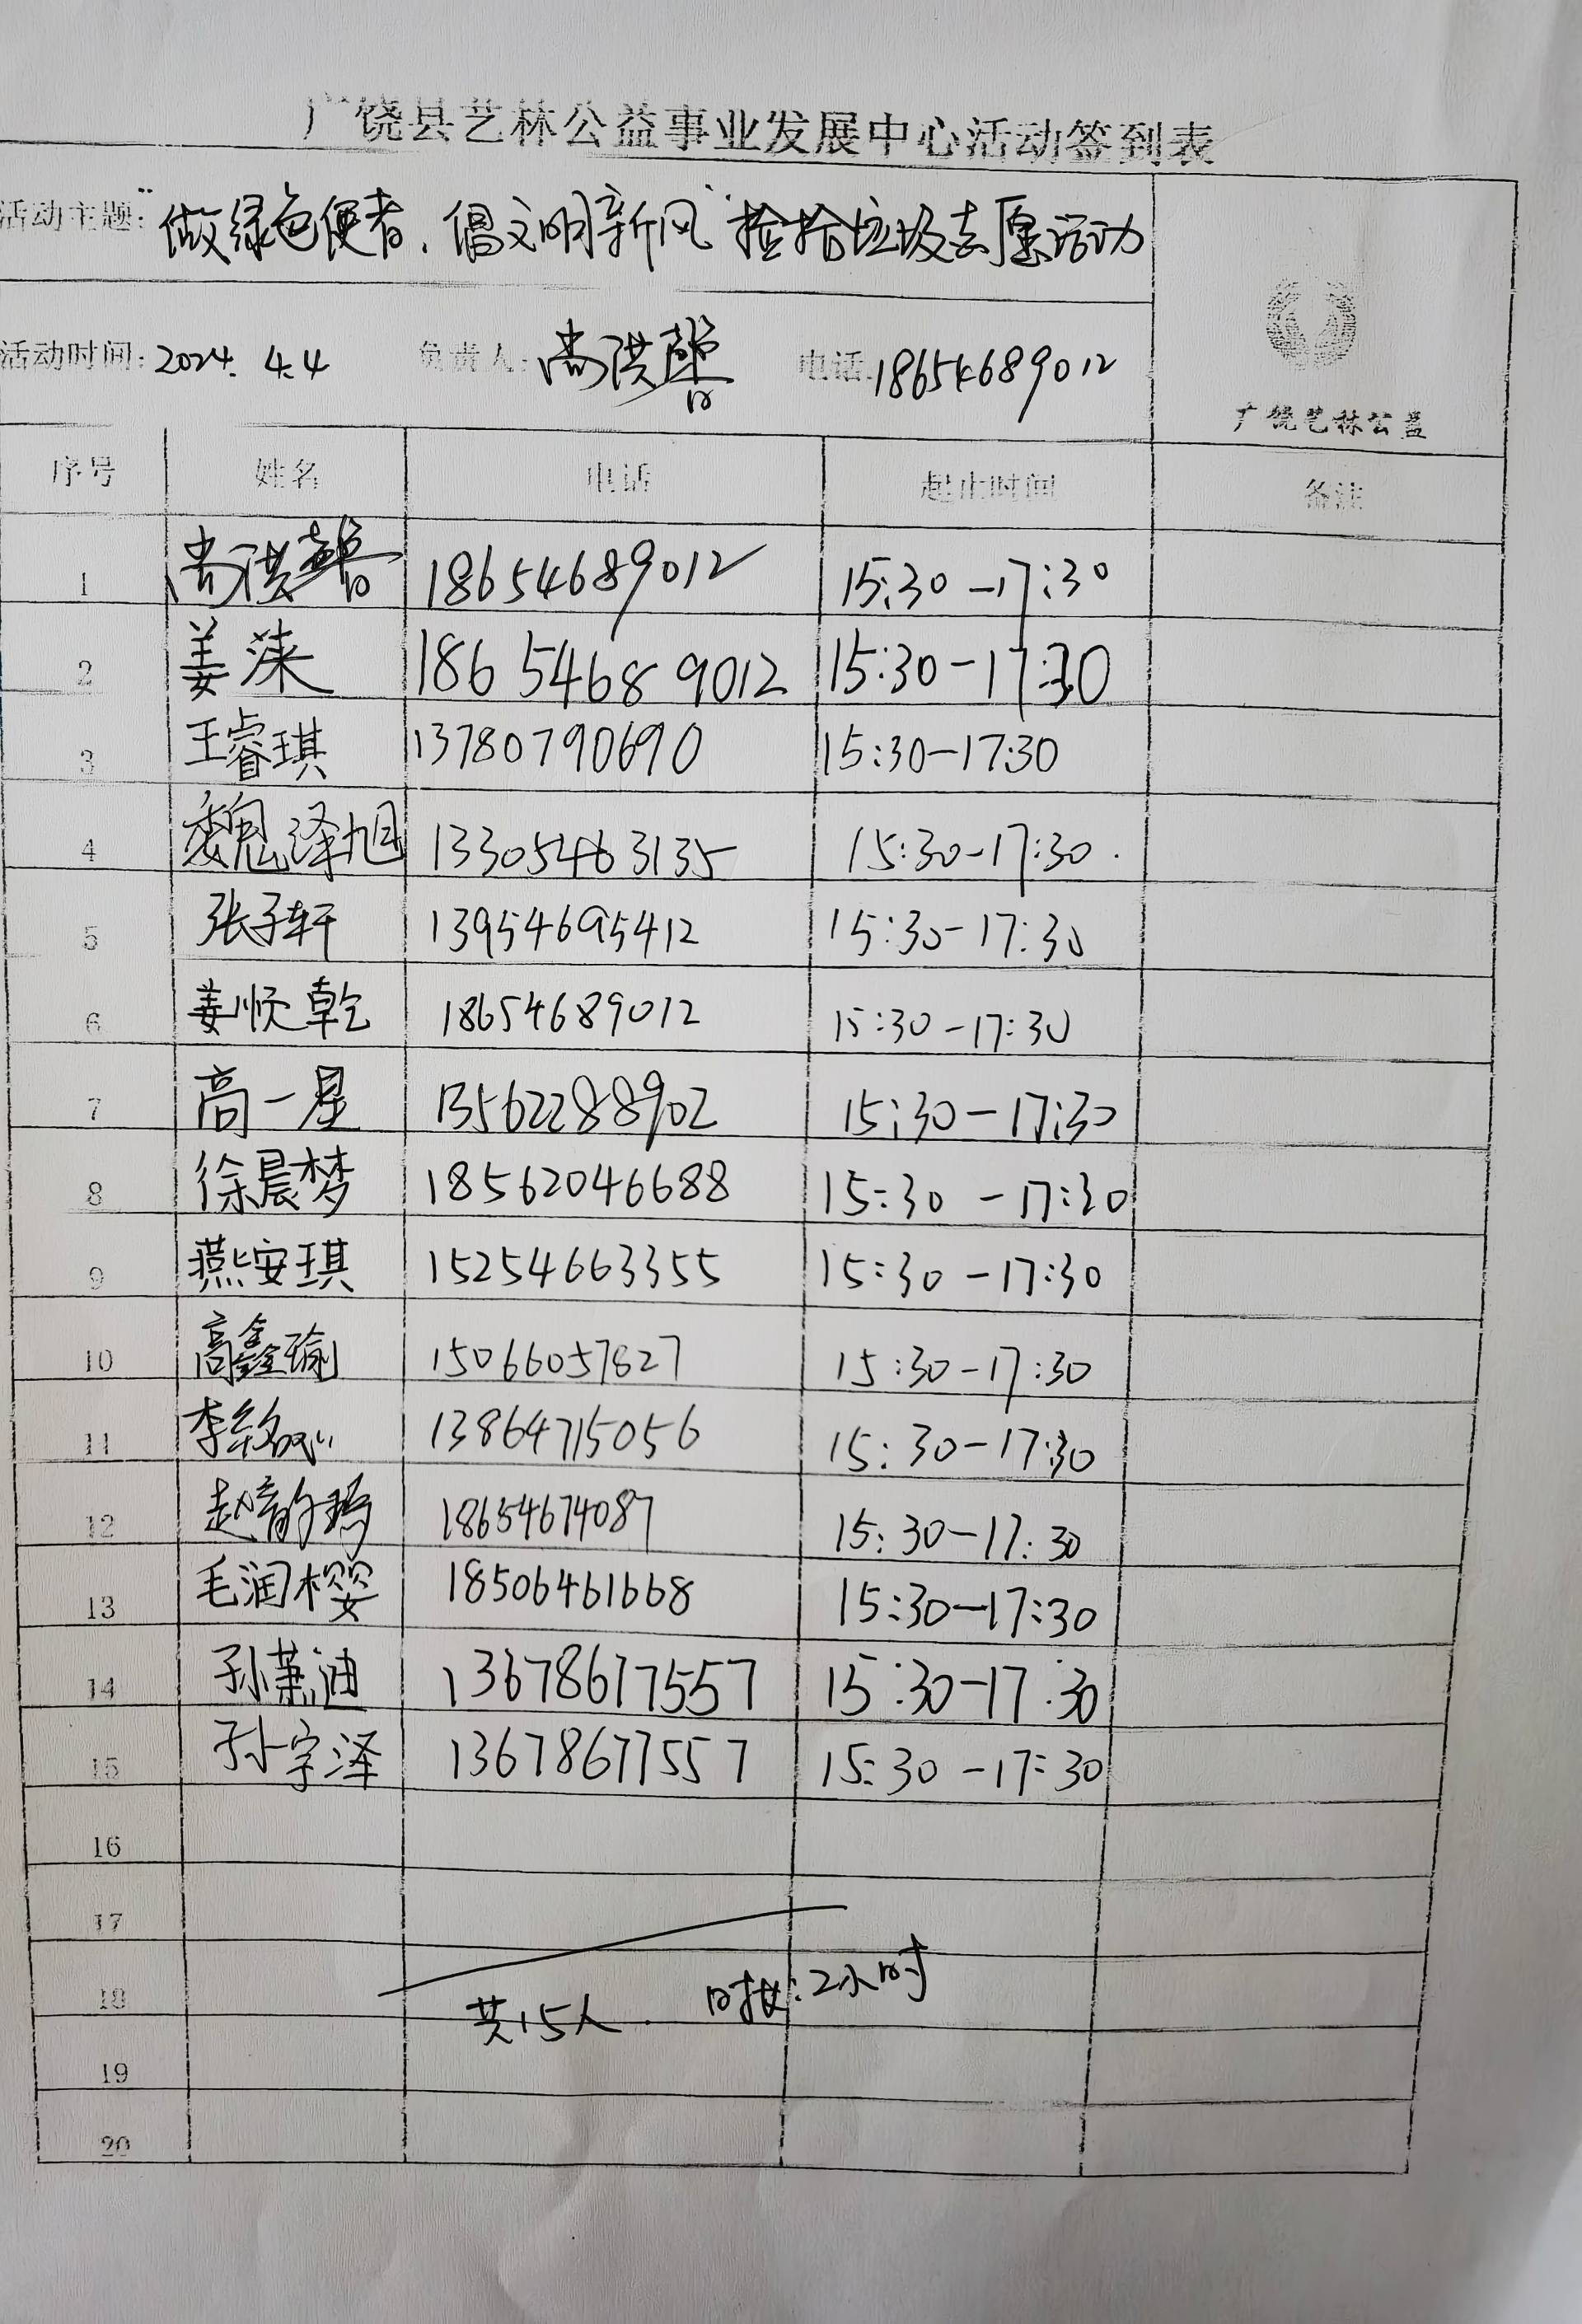 广饶县艺林公益事业发展中心活动签到表
活动主题：“做绿色使者，倡文明新风”捡拾垃圾志愿活动
活动时间：2024.4.4 负责人：尚洪馨 电话：18654689012
广饶艺林公益
序号 姓名 电话 起止时间 备注
1 尚洪馨 18654689012 15:30-17:30
2 姜涞 18654689012 15:30-17:30
3 王睿琪 13780790690 15:30-17:30
4 魏泽旭 13305463135 15:30-17:30.
5 张子轩 13954695412 15:30-17:30
6 姜顺乾 18654689012 15:30-17:30
7 高一星 13562288902 15:30-17:30
8 徐晨梦 18562046688 15:30-17:30
9 燕安琪 15254663355 15:30-17:30
10 高鑫瑜 15066057827 15:30-17:30
11 李 13864715056 15:30-17:30
12 赵 18654674087 15:30-17:30
13 毛润樱 18506461668 15:30-17:30
14 孙萧迪 13678617557 15:30-17:30
15 孙宇泽 13678677557 15:30-17:30
16
17
18 共15人. 时长:2小时
19
20